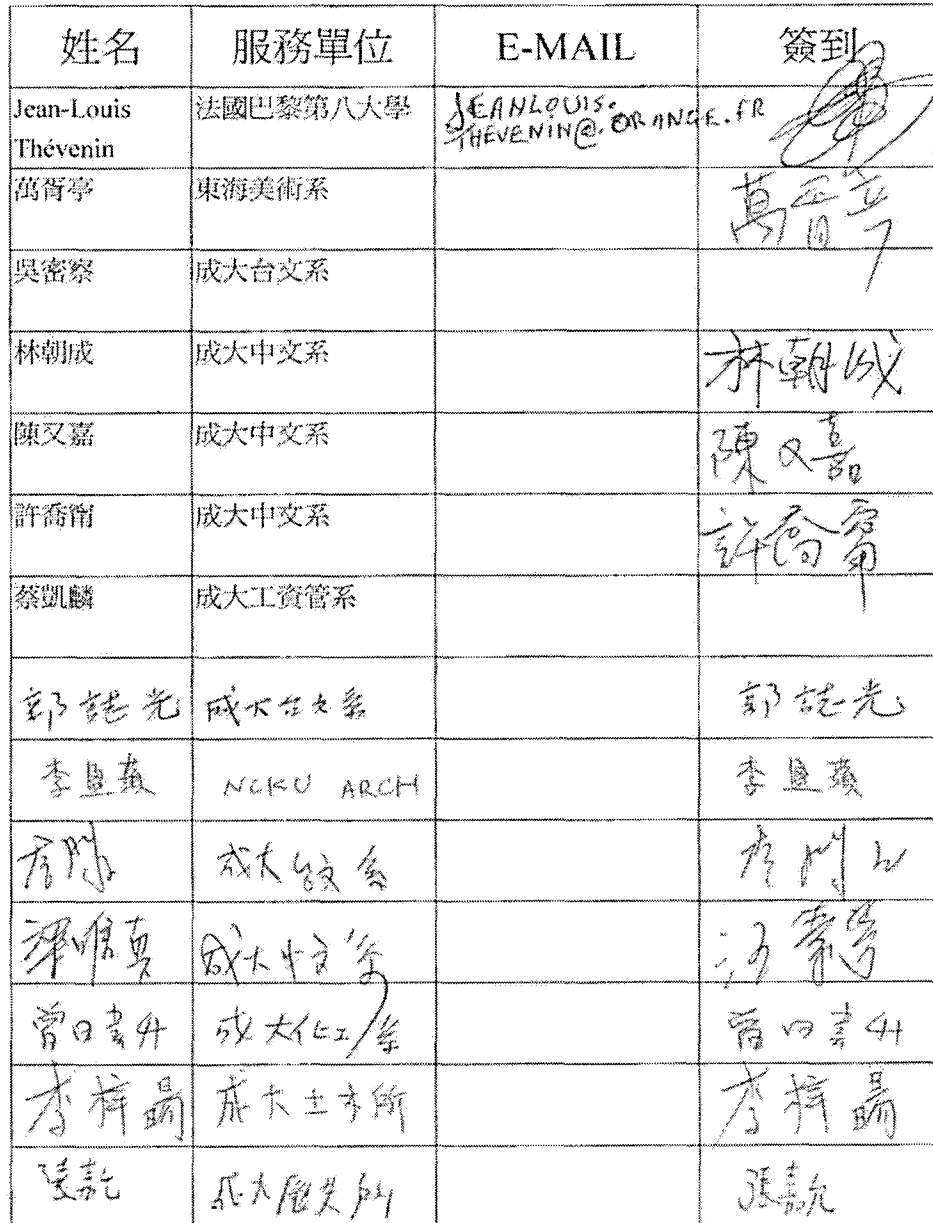 姓名 服務單位 E-MAIL 簽到
Jean-Louis 法國巴黎第八大學 JEANLOUIS.
Thévenin THEVENIN@ORANGE.FR
萬胥亭 東海美術系 萬胥亭
吳密察 成大台文系
林朝成 成大中文系 林朝成
陳又嘉 成大中文系 陳又嘉
許喬甯 成大中文系 許喬甯
蔡凱麟 成大工資管系
郭誌光 成大台文系 郭誌光
李 NCKU ARCH 李
成大台文系
真 成大中文系
曾 成大化工系 曾
李梓暘 成大土木所 李梓暘
張嘉允 成大歷史所 張嘉允